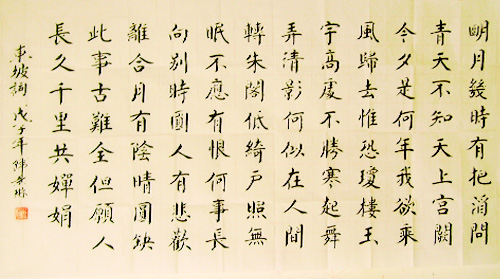 明月幾時有把酒問
青天不知天上宮闕
今夕是何年我欲乘
風歸去惟恐瓊樓玉
宇高處不勝寒起舞
弄清影何似在人間
轉朱閣低綺戶照無
眠不應有恨何事長
向別時圓人有悲歡
離合月有陰晴圓缺
此事古難全但願人
長久千里共嬋娟
東坡詞 戊子年